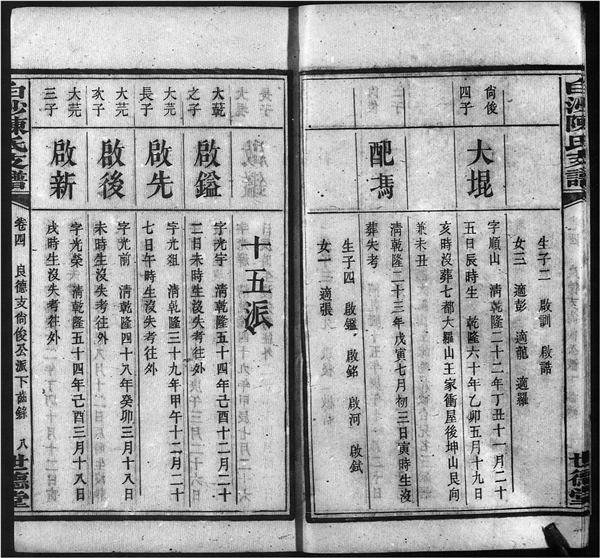 白沙陳氏支譜
世德堂
生子二 啟訓 啟誥
女三 適彭 適龍 適羅
尙俊四子
大焜
字順山 清乾隆二十二年丁丑十一月二十
五日辰時生 乾隆六十年乙卯五月十九日
亥時沒葬七都大羅山王家衝屋後坤山艮向
兼未丑
配馮
清乾隆二十三年戊寅七月初三日寅時生沒
葬失考
生子四 啟鑑 啟銘 啟河 啟鉽
女一 適張
十五派
大薿之子
啟鎰
字光宇 清乾隆五十四年己酉十二月二十
二日未時生沒失考往外
大芫長子
啟先
字光祖 清乾隆三十九年甲午十二月二十
七日午時生沒失考往外
大芫次子
啟後
字光前 清乾隆四十八年癸卯三月十八日
未時生沒失考往外
大芫三子
啟新
字光榮 清乾隆五十四年己酉三月十八日
戌時生沒失考往外
白沙陳氏支譜
卷四 良德支尙俊公派下齒錄 八
世德堂